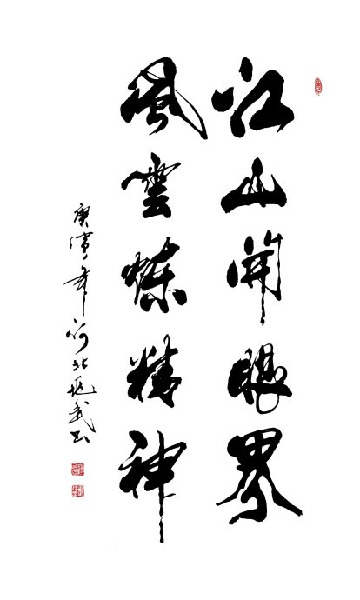 江山開眼界
風雲煉精神
庚寅年 河北 武书